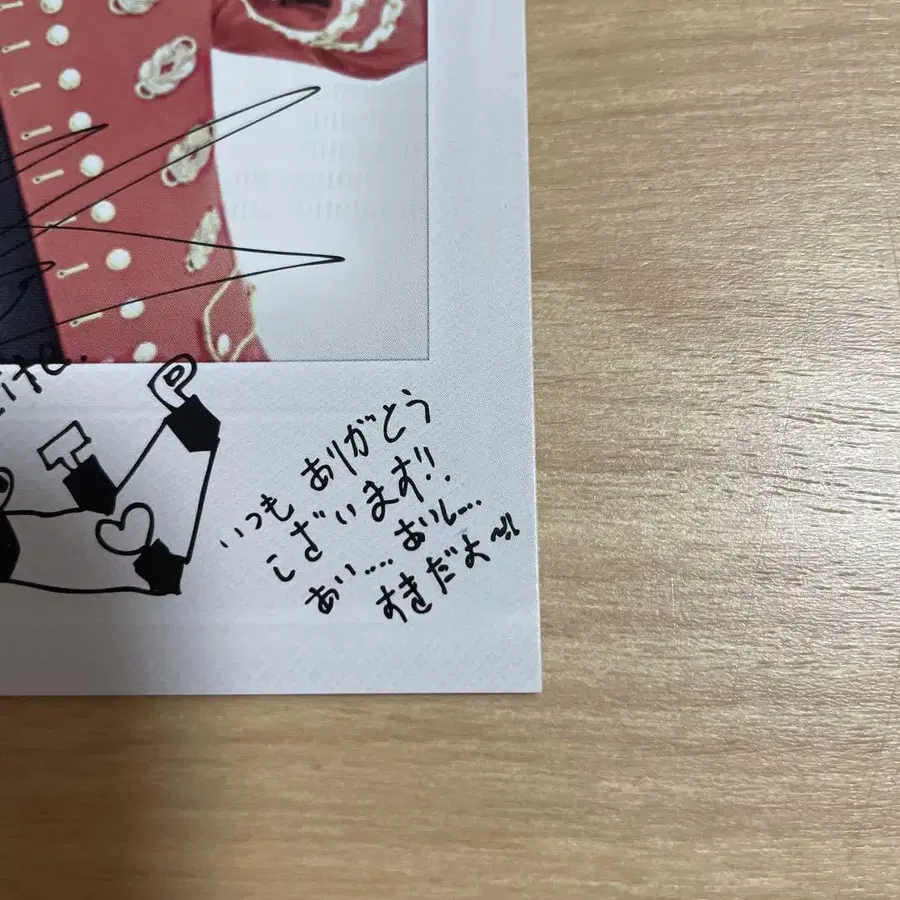 いつも ありがとう
ございます!!
あい.... おいし...
すきだよ～!!